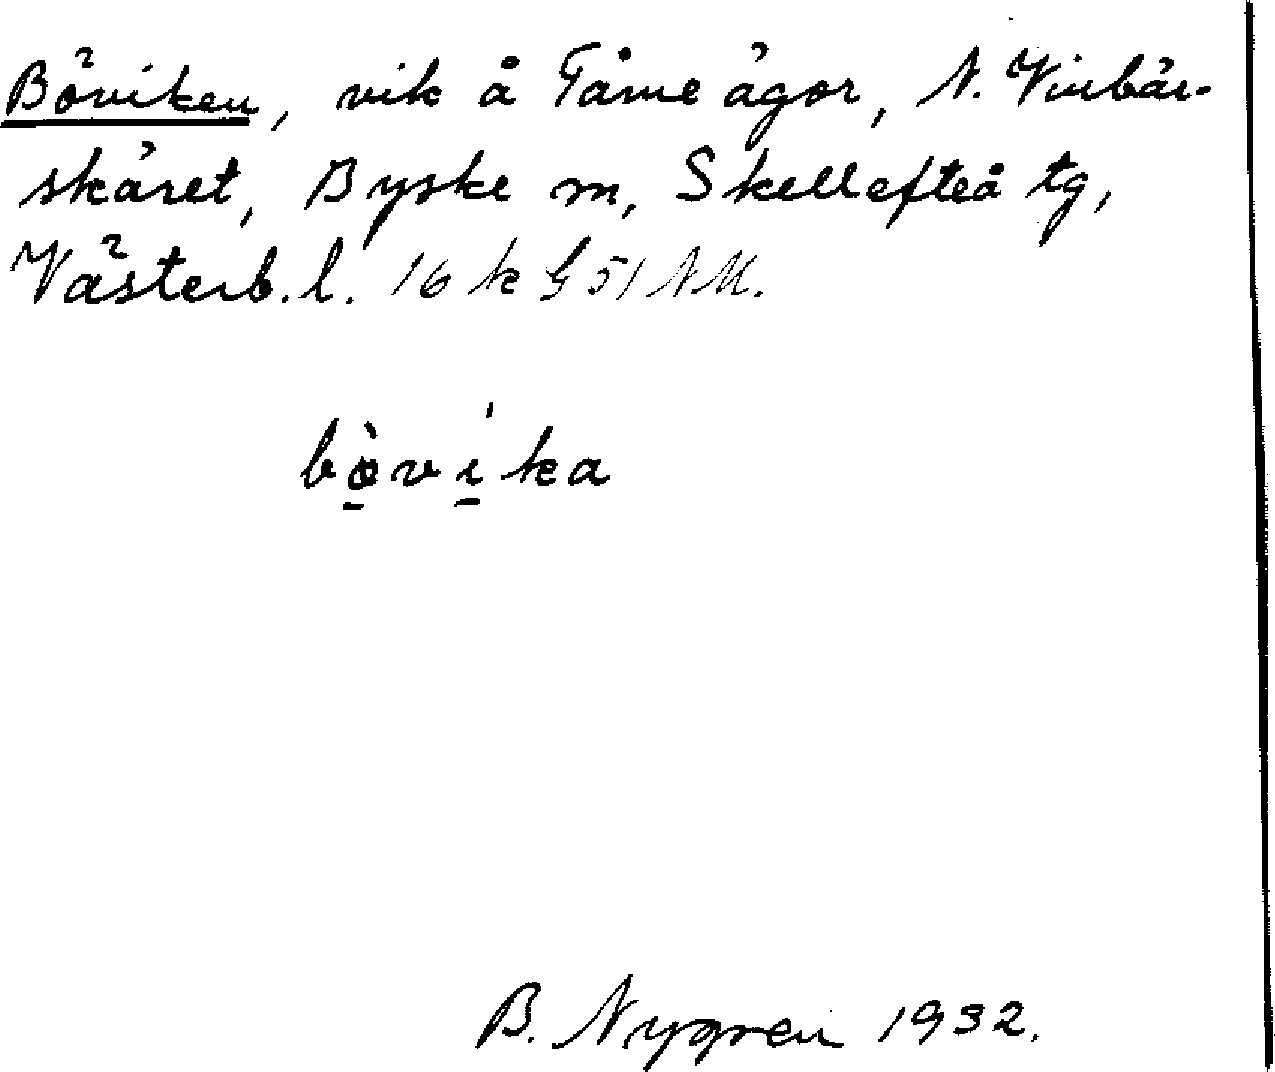 Böviken, vik å Tåme ägor, N. Vinbär-
skäret, Byske sn, Skellefteå tg,
Västerb. l. 16 k G 51 NM.
bø̠̀vi̠ka
B. Nygren 1932.